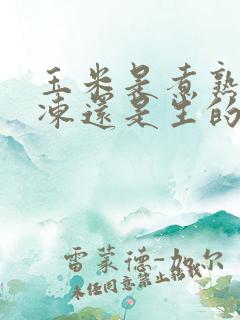 玉米是煮熟
凍還是生的
雷蒙德-加尔
未经同意禁止转载